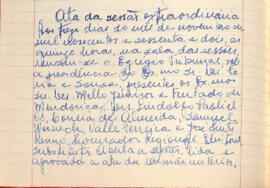 Ata da sessão extraordinária
Aos treze dias do mês de novembro de
mil novecentos e sessenta e dois, às
quinze horas, na sala das sessões,
reuniu-se o Egrégio Tribunal, sob
a presidência do Exmo. Sr. Des. Fa
ria e Sousa, presentes os Exmos.
Srs. Mello Júnior e Furtado de
Mendonça, Drs. Lindolfo
Correia de Almeida, Samuel
Werneck, Valle Ferreira e José
Procurador Regional Eleitoral,
Substituto. Aberta a sessão, lida e
aprovada a ata da sessão anterior,